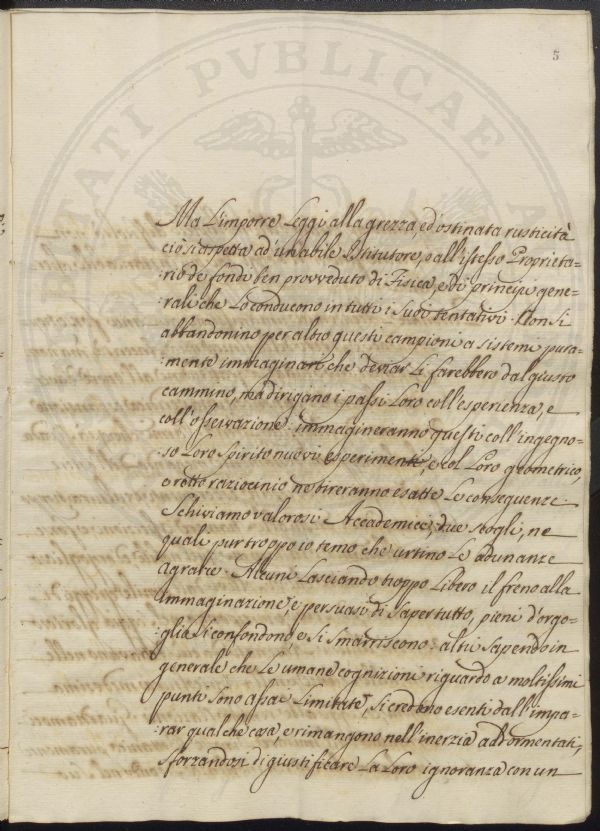 5
TATI PVBLICAE
Ma L'imporre Leggi alla grezza, ed'ostinata rusticità
ciò s'aspetta ad'un abile Istitutore, o all'istesso Proprieta=
:rio de fondi ben provveduto di Fisica, e di principj gene=
:rali che Lo conducono in tutti i Suoi tentativi. Non Si
abbandonino per altro questi campioni a sistemi pura=
:mente immaginarj che deviar Li farebbero dal giusto
cammino, ma dirigano i passi Loro coll'esperienza, e
coll'osservazione: immagineranno questi coll'ingegno=
:so Loro Spirito nuovi esperimenti, e col Loro geometrico,
e rotto raziocinio ne tireranno esatte Le conseguenze.
Schiviamo valorosi Accademici, due scogli, ne
quali pur troppo io temo che urtino Le adunanze
Agrarie. Alcuni Lasciando troppo Libero il freno alla
immaginazione, e persuasi di saper tutto, pieni d'orgo=
:glio si confondono, e Si smarriscono: altri sapendo in
generale che Le umane cognizioni riguardo a moltissimi
punti Sono assai Limitate, Si credono esenti dall'impa=
:rar qualche cosa, e rimangono nell'inerzia addormentati,
sforzandosi di giustificare La Loro ignoranza con un